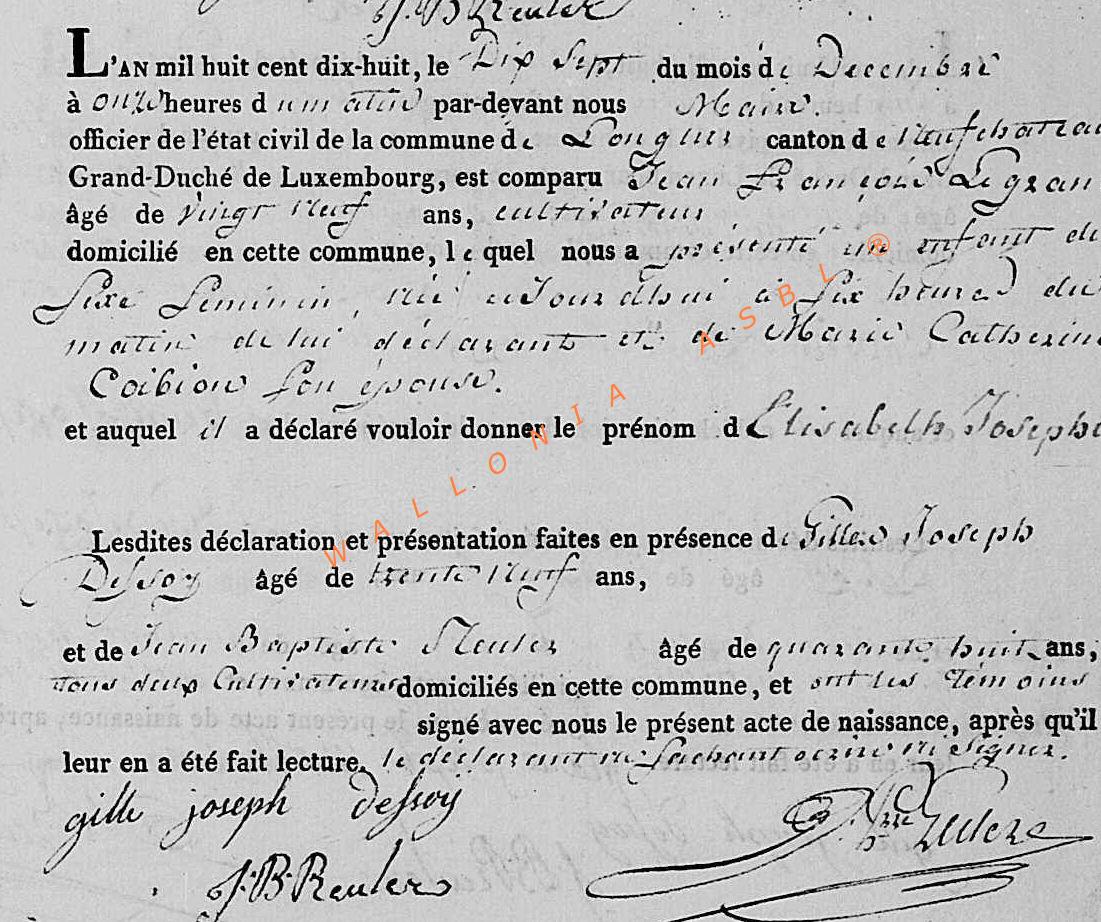 J. B. Reuler
L'AN mil huit cent dix-huit, le Dix Sept du mois de Decembre
à onze heures du matin par-devant nous Maire.
officier de l'état civil de la commune de Longlier canton de Neufchateau
Grand-Duché de Luxembourg, est comparu Jean François Legran
âgé de vingt neuf ans, cultivateur
domicilié en cette commune, lequel nous a présenté un enfant du
Sexe Feminin, née aujourdhui à six heures du
matin de lui déclarant et de Marie Catherine
Coibion son épouse.
et auquel il a déclaré vouloir donner le prénom d Elisabeth Josephe
Lesdites déclaration et présentation faites en présence de Gilles Joseph
Dessoy âgé de trente neuf ans,
et de Jean Baptiste Reuler âgé de quarante huit ans,
tous deux Cultivateurs domiciliés en cette commune, et ont les Témoins
signé avec nous le présent acte de naissance, après qu'il
leur en a été fait lecture. le déclarant ne sachant ecrire ni signer.
gille joseph dessoy
J. B. Reuler
WALLONIA ASBL ®